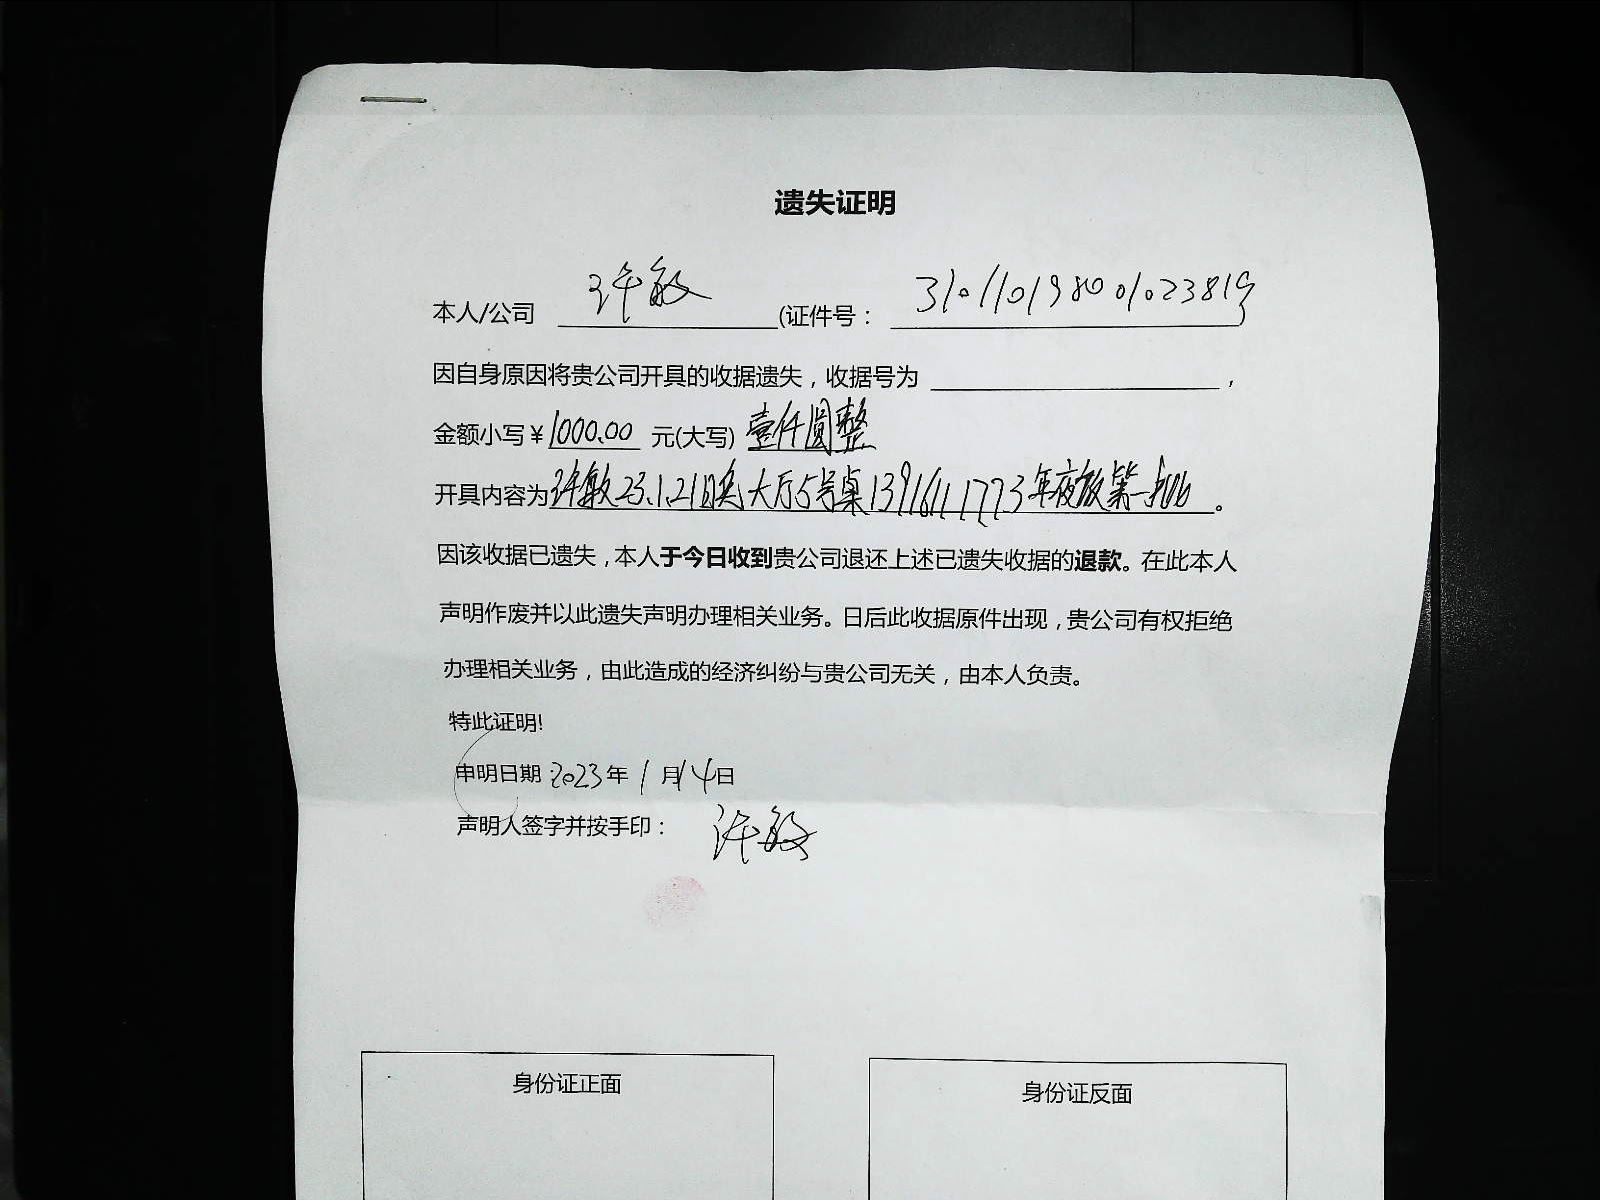 遗失证明
本人/公司 许敏 (证件号： 310110198001023819)
因自身原因将贵公司开具的收据遗失，收据号为 ，
金额小写￥1000.00 元(大写) 壹仟圆整
开具内容为许敏23.1.21日 大厅5号桌13916111773年夜饭第一 。
因该收据已遗失，本人于今日收到贵公司退还上述已遗失收据的退款。在此本人
声明作废并以此遗失声明办理相关业务。日后此收据原件出现，贵公司有权拒绝
办理相关业务，由此造成的经济纠纷与贵公司无关，由本人负责。
特此证明!
申明日期 2023年 1 月14日
声明人签字并按手印： 许敏
身份证正面 身份证反面